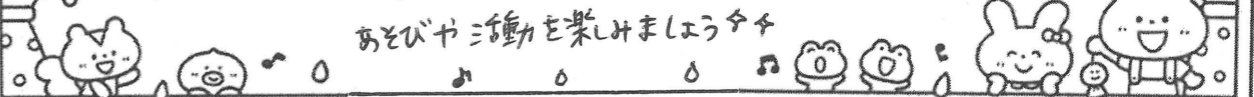 あそびや活動を楽しみましょう